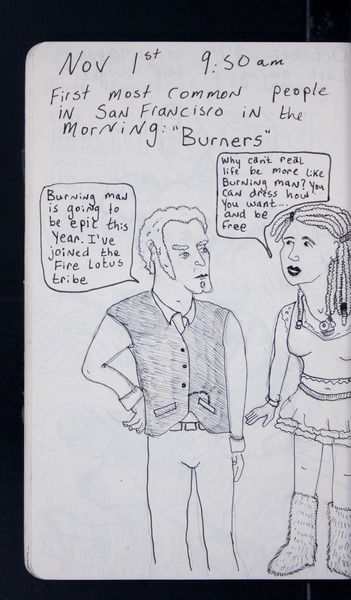 Nov 1st 9:50 am
First most common people
in San Francisco in the
morning: "Burners"
Why can't real
life be more like
Burning man? You
can dress how
you want...
and be
free
Burning man
is going to
be epic this
year. I've
joined the
Fire Lotus
tribe